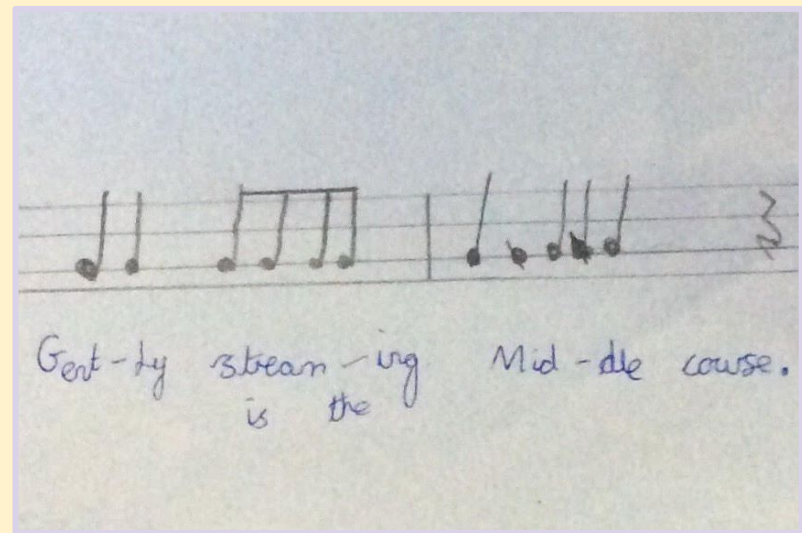 Gent-ly stream-ing Mid-dle course.
is the